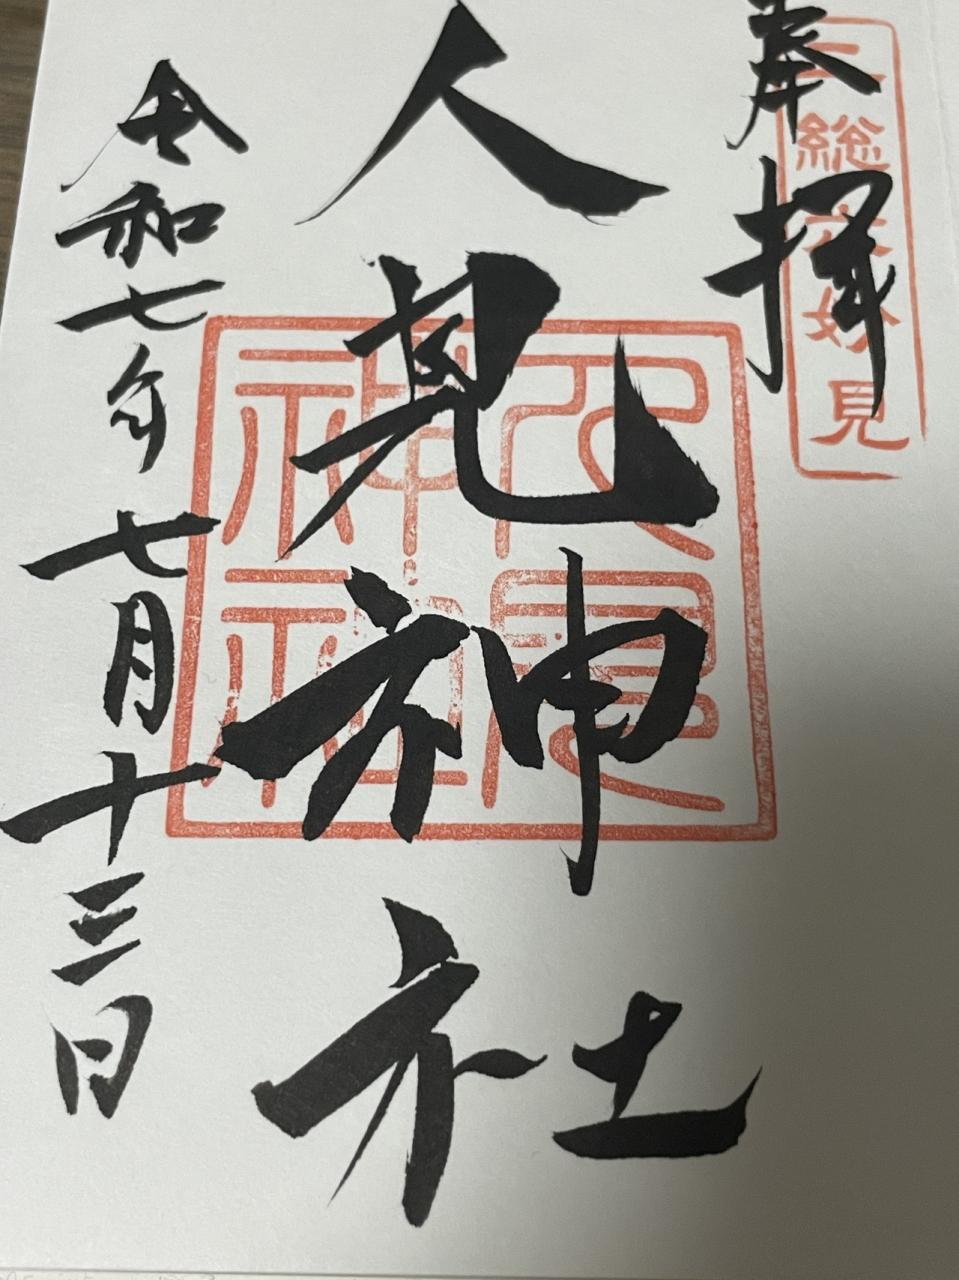 奉拝
二総六妙見
人見神社
人見神社
令和七年七月十三日